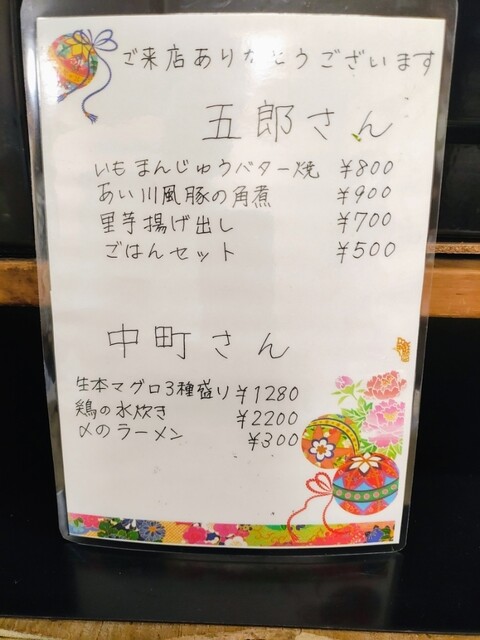 ご来店ありがとうございます
五郎さん
いもまんじゅうバター焼 ¥800
あい川風豚の角煮 ¥900
里芋揚げ出し ¥700
ごはんセット ¥500
中町さん
生本マグロ3種盛り ¥1280
鶏の水炊き ¥2200
〆のラーメン ¥300